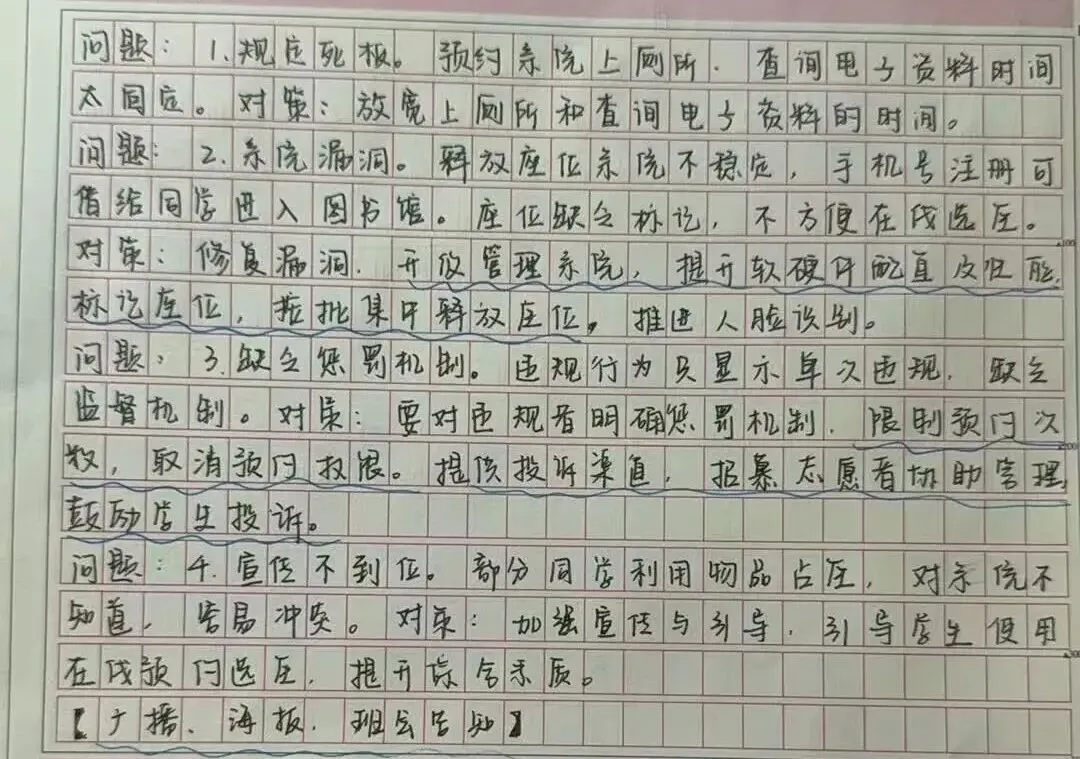 问题：1.规定死板。预约系统上厕所、查询电子资料时间
太固定。对策：放宽上厕所和查询电子资料的时间。
问题：2.系统漏洞。释放座位系统不稳定，手机号注册可
借给同学进入图书馆。座位缺乏标记，不方便在线选座。
对策：修复漏洞、开放管理系统，提升软硬件配置及性能，
标记座位，按批集中释放座位。推进人脸识别。
问题：3.缺乏惩罚机制。违规行为只显示单次违规，缺乏
监督机制。对策：要对违规者明确惩罚机制、限制预约次
数，取消预约权限。提供投诉渠道，招募志愿者协助管理，
鼓励学生投诉。
问题：4.宣传不到位。部分同学利用物品占座，对系统不
知道，容易冲突。对策：加强宣传与引导，引导学生使用
在线预约选座，提升综合素质。
【广播、海报、班会告知】